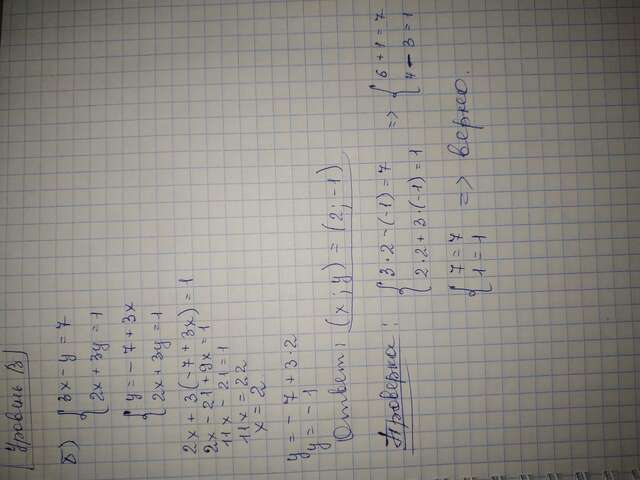 Уровень В
б) { 3x - y = 7
2x + 3y = 1
{ y = -7 + 3x
2x + 3y = 1
2x + 3(-7 + 3x) = 1
2x - 21 + 9x = 1
11x - 21 = 1
11x = 22
x = 2
y = -7 + 3·2
y = -1
Ответ: (x; y) = (2; -1)
Проверка: { 3·2 - (-1) = 7 => { 6 + 1 = 7
2·2 + 3·(-1) = 1 4 - 3 = 1
{ 7 = 7
1 = 1 => верно.